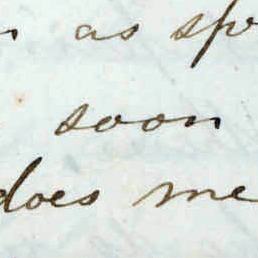 as sp
soon
does me